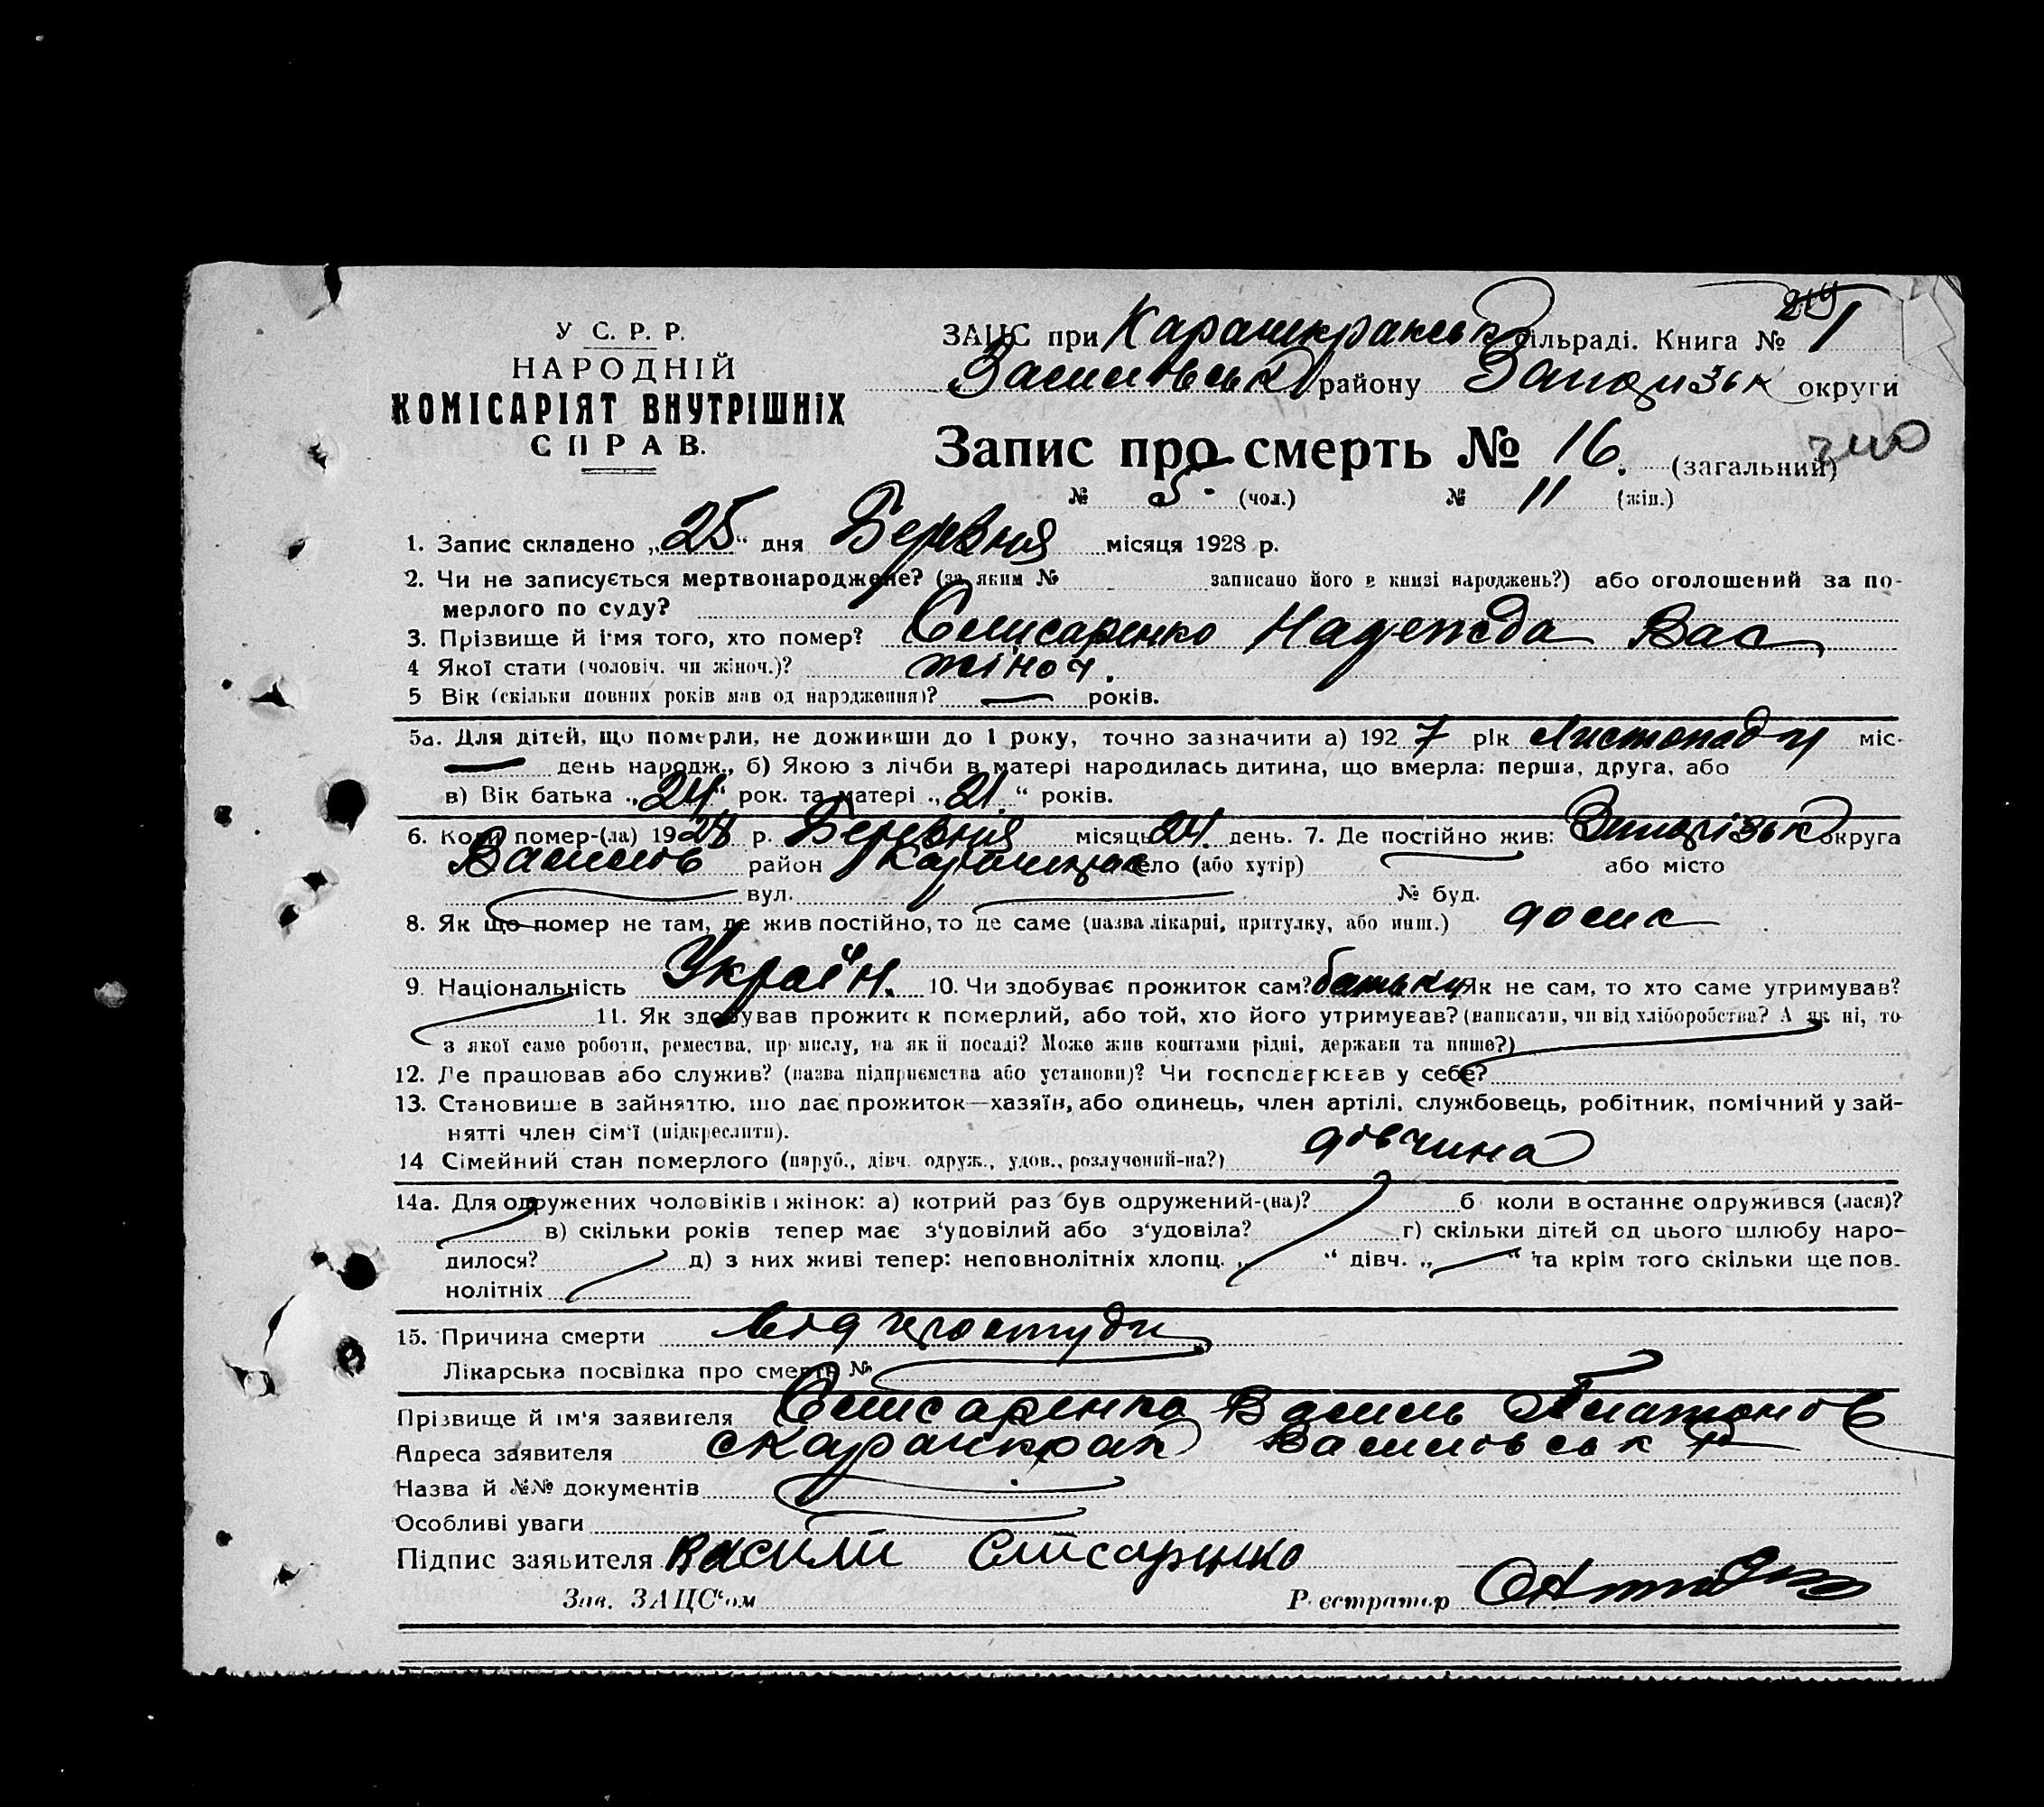 У С. Р. Р.
НАРОДНІЙ
КОМІСАРІЯТ ВНУТРІШНІХ
СПРАВ.
ЗАЦС при сільраді. Книга № 1
району округи
Запис про смерть № 16. (загальний)
№ 5. (чол.) № 11 (жін.)
1. Запис складено „25“ дня Березня місяця 1928 р.
2. Чи не записується мертвонароджене? (за яким № записано його в книзі народжень?) або оголошений за по-
мерлого по суду?
3. Прізвище й ім‘я того, хто помер? Слисаренко Надежда Вас
4 Якої стати (чоловіч. чи жіноч.)? жіноч.
5 Вік (скільки повних років мав од народження)? — років.
5а. Для дітей, що померли, не доживши до 1 року, точно зазначити а) 1927 рік Листопаду міс-
— день народж., б) Якою з лічби в матері народилась дитина, що вмерла: перша, друга, або
в) Вік батька „24“ рок. та матері „21“ років.
6. Коли помер-(ла) 1928 р. Березня місяць 24. день. 7. Де постійно жив: округа
Василів район село (або хутір) або місто
вул. № буд.
8. Як що помер не там, де жив постійно, то де саме (назва лікарні, притулку, або инш.)
9. Національність Україн. 10. Чи здобуває прожиток сам? батьку Як не сам, то хто саме утримував?
11. Як здобував прожиток померлий, або той, хто його утримував? (написати, чи від хліборобства? А як ні, то
з якої саме роботи, ремества, промислу, на якій посаді? Може жив коштами рідні, держави та инше?)
12. Де працював або служив? (назва підприємства або установи)? Чи господарював у себе?
13. Становище в зайняттю, що дає прожиток—хазяїн, або одинець, член артілі, службовець, робітник, помічний у зай-
нятті член сім‘ї (підкреслити).
14 Сімейний стан померлого (паруб., дівч. одруж., удов., розлучений-на?) дівчина
14а. Для одружених чоловіків і жінок: а) котрий раз був одружений-(на)? б коли в останнє одружився (лася)?
в) скільки років тепер має з‘удовілий або з‘удовіла? г) скільки дітей од цього шлюбу наро-
дилося? д) з них живі тепер: неповнолітніх хлопц. „ “ дівч. „ “ та крім того скільки ще пов-
нолітніх
15. Причина смерти від простуди
Лікарська посвідка про смерть №
Прізвище й ім‘я заявителя Слисаренко Василь Платонов
Адреса заявителя Василовськ р
Назва й №№ документів
Особливі уваги
Підпис заявителя Василий Слисаренко
Зав. ЗАЦС‘ом Реєстратор